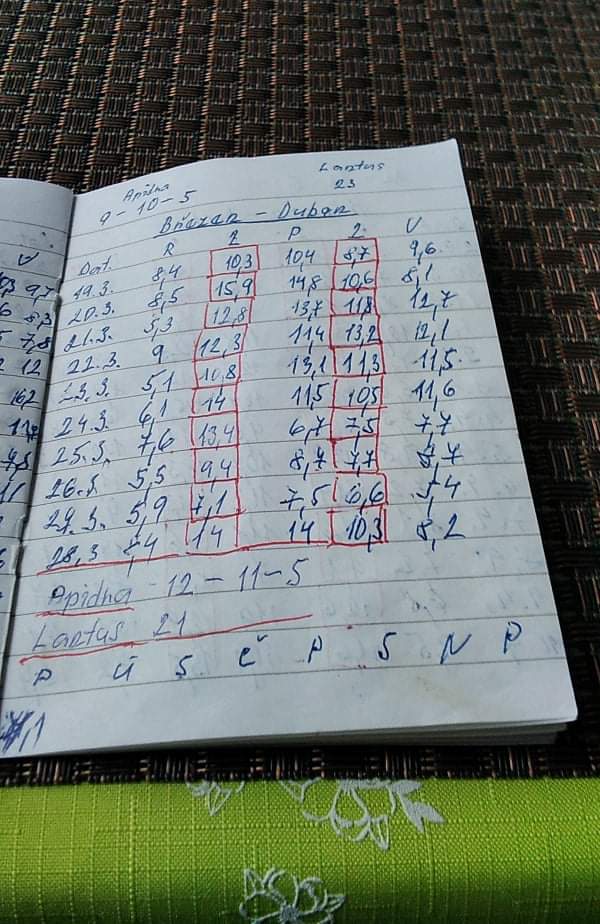 Apidna Lantus
9-10-5 23
Březen - Duben
Dat. R 2 P 2. V
19.3. 8,4 10,3 10,4 8,7 9,6
20.3. 8,5 15,9 14,8 10,6 8,1
21.3. 5,3 12,8 13,7 11,8 12,7
22.3. 9 12,3 11,4 13,2 12,1
23.3. 5,1 10,8 13,1 11,3 11,5
24.3. 6,1 14 11,5 10,5 11,6
25.3. 7,6 13,4 6,7 7,5 7,7
26.3. 5,5 9,4 8,7 7,7 8,7
5,9 7,1 7,5 6,6 5,4
28.3 14 14 10,3 8,2
Apidna 12-11-5
Lantus 21
P Ú S Č P S N P
9,7
8,3
7,8
12
16,2